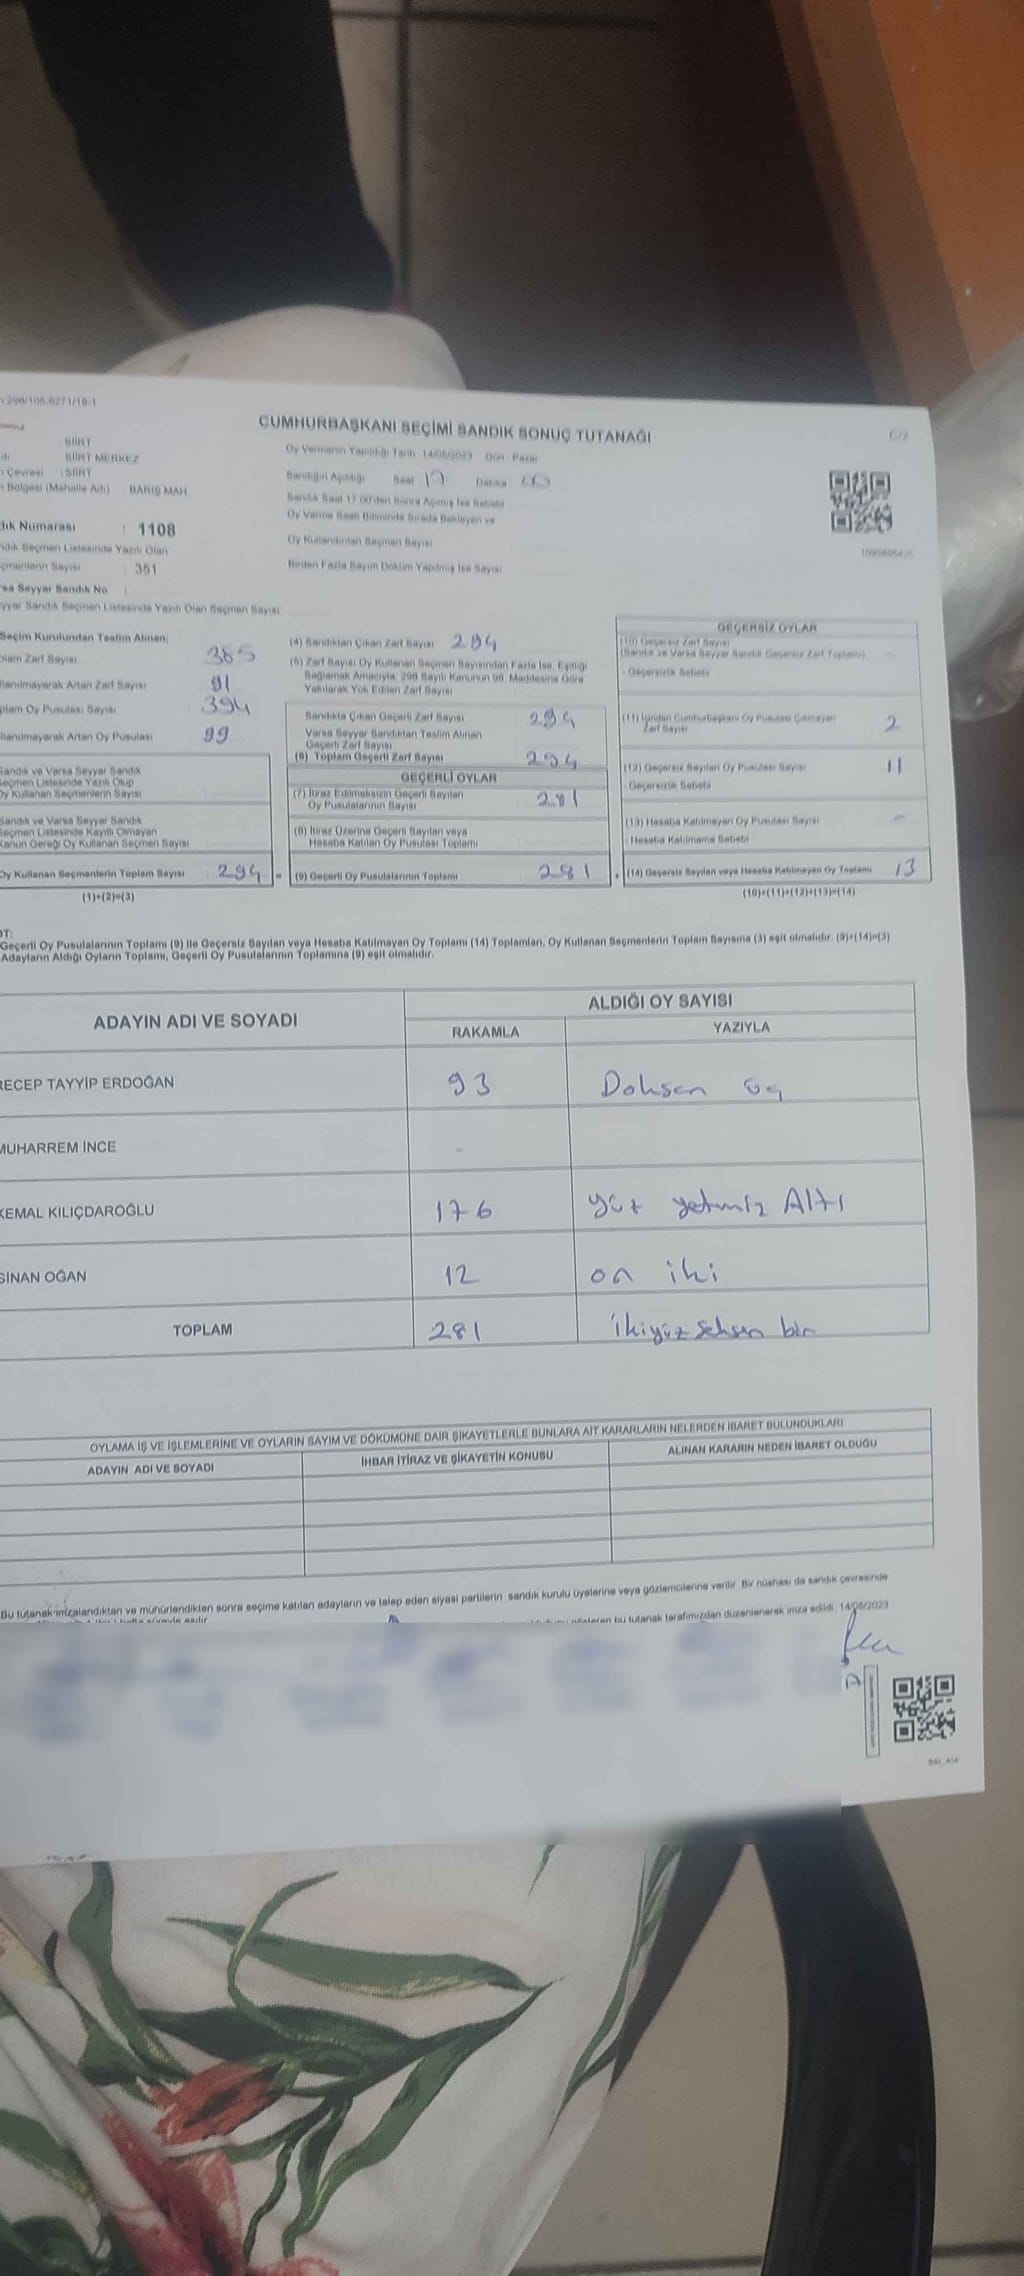 CUMHURBAŞKANI SEÇİMİ SANDIK SONUÇ TUTANAĞI
SİİRT
SİİRT MERKEZ
Çevresi : SİİRT
Bölgesi (Mahalle Adı) : BARIŞ MAH
Numarası : 1108
Seçmen Listesinde Yazılı Olan
Sayısı : 351
Seyyar Sandık No
Sandık Seçmen Listesinde Yazılı Olan Seçmen Sayısı
Oy Vermenin Yapıldığı Tarih : 14/05/2023 Gün : Pazar
Sandığın Açıldığı Saat 17 Dakika 00
Sandık Saat 17:00'den Sonra Açılmış İse Sebebi
Oy Verme Saati Bitiminde Sırada Bekleyen ve
Oy Kullandırılan Seçmen Sayısı
Birden Fazla Sayım Döküm Yapılmış İse Sayısı
Seçim Kurulundan Teslim Alınan;
Zarf Sayısı 385
Artan Zarf Sayısı 91
Oy Pusulası Sayısı 394
Artan Oy Pusulası 99
Sandık ve Varsa Seyyar Sandık
Seçmen Listesinde Yazılı Olup
Oy Kullanan Seçmenlerin Sayısı
Sandık ve Varsa Seyyar Sandık
Seçmen Listesinde Kayıtlı Olmayan
Kanun Gereği Oy Kullanan Seçmen Sayısı
Oy Kullanan Seçmenlerin Toplam Sayısı 294
(1)+(2)=(3)
(4) Sandıktan Çıkan Zarf Sayısı 294
(5) Zarf Sayısı Oy Kullanan Seçmen Sayısından Fazla İse, Eşitliği
Sağlamak Amacıyla, 298 Sayılı Kanunun 98. Maddesine Göre
Yakılarak Yok Edilen Zarf Sayısı
Sandıkta Çıkan Geçerli Zarf Sayısı 294
Varsa Seyyar Sandıktan Teslim Alınan
Geçerli Zarf Sayısı
(6) Toplam Geçerli Zarf Sayısı 294
GEÇERLİ OYLAR
(7) İtiraz Edilmeksizin Geçerli Sayılan
Oy Pusulalarının Sayısı 281
(8) İtiraz Üzerine Geçerli Sayılan veya
Hesaba Katılan Oy Pusulası Toplamı
(9) Geçerli Oy Pusulalarının Toplamı 281
GEÇERSİZ OYLAR
(10) Geçersiz Zarf Sayısı
(Sandık ve Varsa Seyyar Sandık Geçersiz Zarf Toplamı) -
- Geçersizlik Sebebi
(11) İçinden Cumhurbaşkanı Oy Pusulası Çıkmayan
Zarf Sayısı 2
(12) Geçersiz Sayılan Oy Pusulası Sayısı 11
- Geçersizlik Sebebi
(13) Hesaba Katılmayan Oy Pusulası Sayısı -
- Hesaba Katılmama Sebebi
(14) Geçersiz Sayılan veya Hesaba Katılmayan Oy Toplamı 13
(10)+(11)+(12)+(13)=(14)
Geçerli Oy Pusulalarının Toplamı (9) ile Geçersiz Sayılan veya Hesaba Katılmayan Oy Toplamı (14) Toplamları, Oy Kullanan Seçmenlerin Toplam Sayısına (3) eşit olmalıdır. (9)+(14)=(3)
Adayların Aldığı Oyların Toplamı, Geçerli Oy Pusulalarının Toplamına (9) eşit olmalıdır.
ADAYIN ADI VE SOYADI ALDIĞI OY SAYISI
RAKAMLA YAZIYLA
RECEP TAYYİP ERDOĞAN 93 Doksan üç
MUHARREM İNCE -
KEMAL KILIÇDAROĞLU 176 yüz yetmiş Altı
SİNAN OĞAN 12 on iki
TOPLAM 281 ikiyüz seksen bir
OYLAMA İŞ VE İŞLEMLERİNE VE OYLARIN SAYIM VE DÖKÜMÜNE DAİR ŞİKAYETLERLE BUNLARA AİT KARARLARIN NELERDEN İBARET BULUNDUKLARI
ADAYIN ADI VE SOYADI İHBAR İTİRAZ VE ŞİKAYETİN KONUSU ALINAN KARARIN NEDEN İBARET OLDUĞU
Bu tutanak imzalandıktan ve mühürlendikten sonra seçime katılan adayların ve talep eden siyasi partilerin sandık kurulu üyelerine veya gözlemcilerine verilir. Bir nüshası da sandık çevresinde
bu tutanak tarafımızdan düzenlenerek imza edildi. 14/05/2023